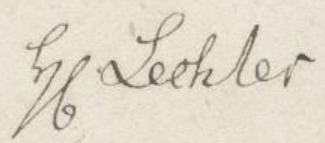 H Lechler